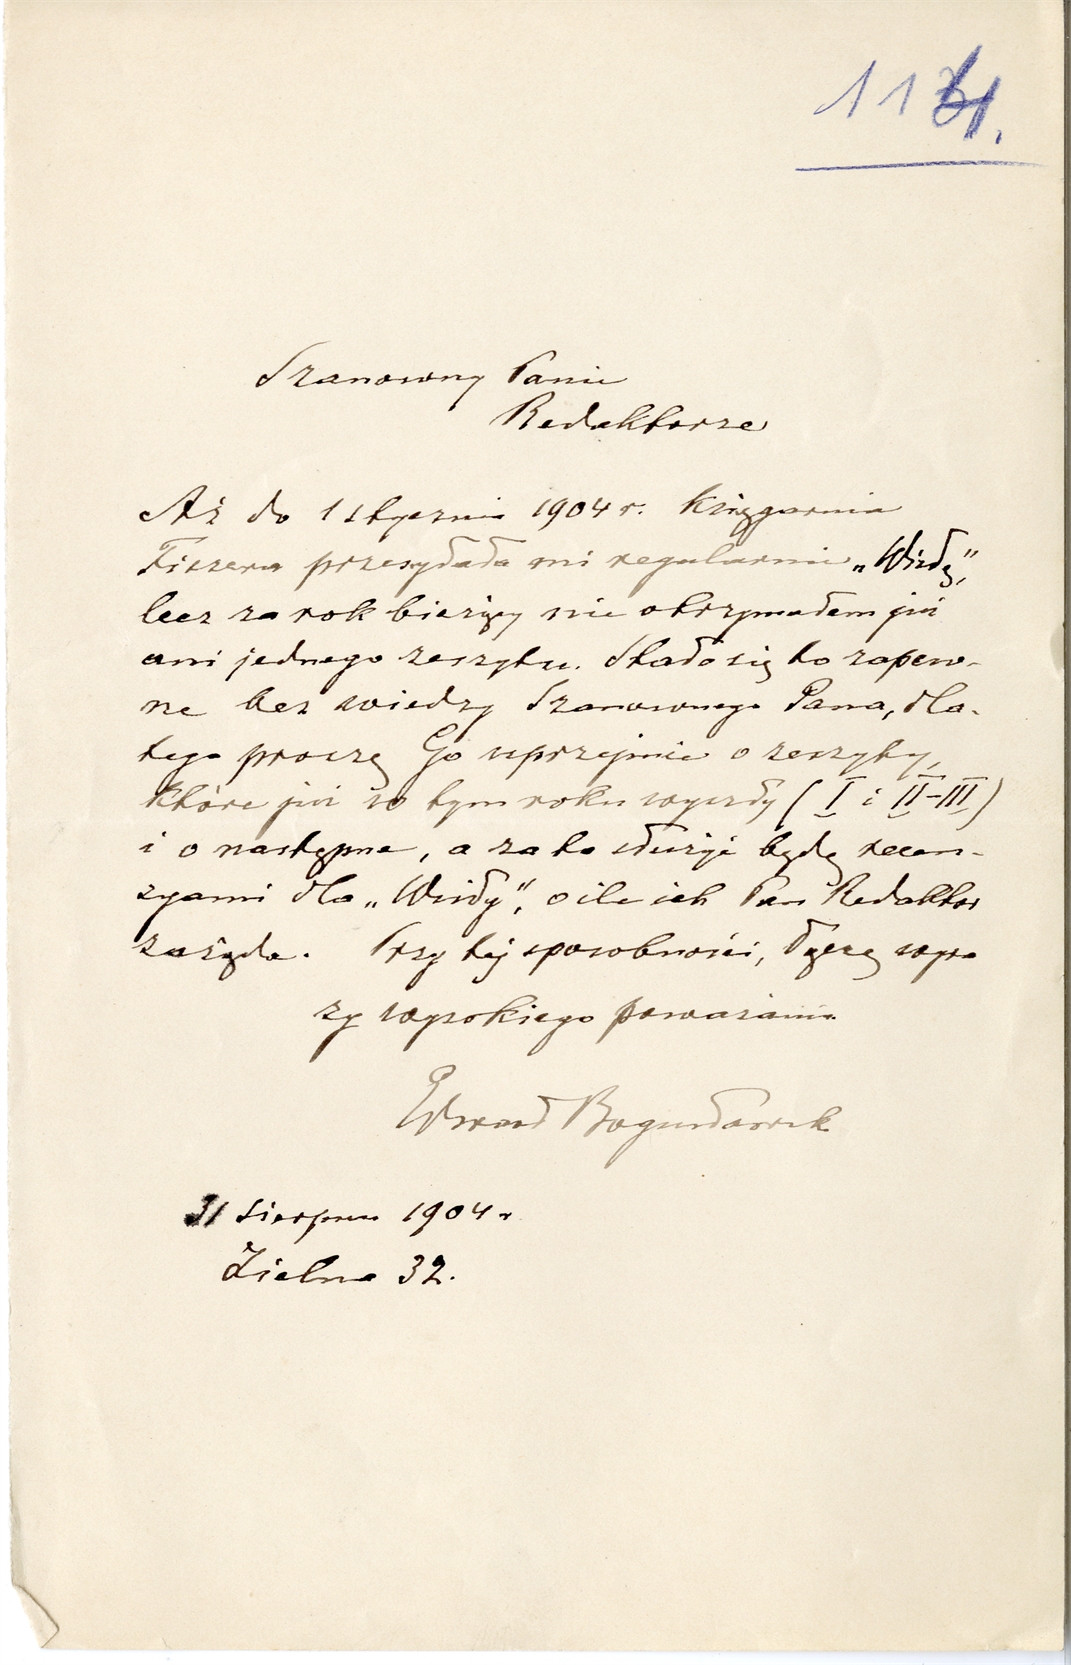 Szanowny Panie
Redaktorze
Aż do 1 stycznia 1904 r. księgarnia
Fiszera przesyłała mi regularnie „Wisłę",
lecz za rok bieżący nie otrzymałem już
ani jednego zeszytu. Stało się to zapew-
ne bez wiedzy Szanownego Pana, dla-
tego proszę Go uprzejmie o zeszyty,
które już w tym roku wyszły (I i II-III)
i o następne, a za to służyć będę recen-
zyami dla „Wisły", o ile ich Pan Redaktor
zażąda. Przy tej sposobności, łączę wyra
zy wysokiego poważania
Edward Bogusławsk
31 sierpnia 1904 r
Zielna 32.